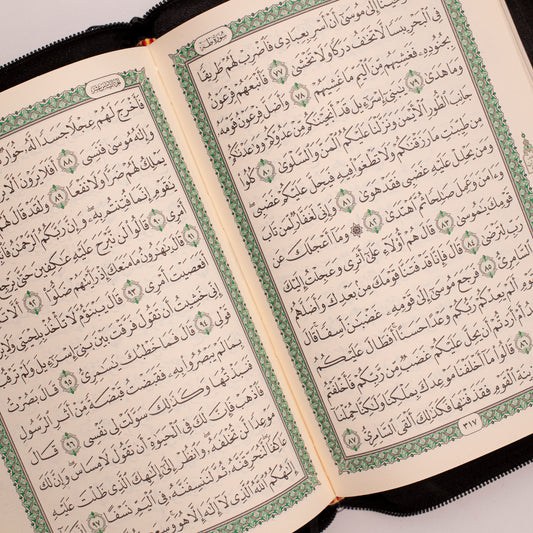 سُورَةُ طه
إِلَىٰ مُوسَىٰٓ أَنْ أَسْرِ بِعِبَادِى فَٱضْرِبْ لَهُمْ طَرِيقًا
فِى ٱلْبَحْرِ يَبَسًا لَّا تَخَٰفُ دَرَكًا وَلَا تَخْشَىٰ ٧٧ فَأَتْبَعَهُمْ فِرْعَوْنُ
بِجُنُودِهِۦ فَغَشِيَهُم مِّنَ ٱلْيَمِّ مَا غَشِيَهُمْ ٧٨ وَأَضَلَّ فِرْعَوْنُ قَوْمَهُۥ
وَمَا هَدَىٰ ٧٩ يَٰبَنِىٓ إِسْرَٰٓءِيلَ قَدْ أَنجَيْنَٰكُم مِّنْ عَدُوِّكُمْ وَوَٰعَدْنَٰكُمْ
جَانِبَ ٱلطُّورِ ٱلْأَيْمَنَ وَنَزَّلْنَا عَلَيْكُمُ ٱلْمَنَّ وَٱلسَّلْوَىٰ ٨٠ كُلُوا۟
مِن طَيِّبَٰتِ مَا رَزَقْنَٰكُمْ وَلَا تَطْغَوْا۟ فِيهِ فَيَحِلَّ عَلَيْكُمْ غَضَبِى
وَمَن يَحْلِلْ عَلَيْهِ غَضَبِى فَقَدْ هَوَىٰ ٨١ وَإِنِّى لَغَفَّارٌ لِّمَن تَابَ
وَءَامَنَ وَعَمِلَ صَٰلِحًا ثُمَّ ٱهْتَدَىٰ ٨٢ ۞ وَمَآ أَعْجَلَكَ عَن
قَوْمِكَ يَٰمُوسَىٰ ٨٣ قَالَ هُمْ أُو۟لَآءِ عَلَىٰٓ أَثَرِى وَعَجِلْتُ إِلَيْكَ
رَبِّ لِتَرْضَىٰ ٨٤ قَالَ فَإِنَّا قَدْ فَتَنَّا قَوْمَكَ مِنۢ بَعْدِكَ وَأَضَلَّهُمُ
ٱلسَّامِرِىُّ ٨٥ فَرَجَعَ مُوسَىٰٓ إِلَىٰ قَوْمِهِۦ غَضْبَٰنَ أَسِفًا قَالَ
أَلَمْ يَعِدْكُمْ رَبُّكُمْ وَعْدًا حَسَنًا أَفَطَالَ عَلَيْكُمُ
أَمْ أَرَدتُّمْ أَن يَحِلَّ عَلَيْكُمْ غَضَبٌ مِّن رَّبِّكُمْ فَأَخْلَفْتُم
٨٦ قَالُوا۟ مَآ أَخْلَفْنَا مَوْعِدَكَ بِمَلْكِنَا وَلَٰكِنَّا حُمِّلْنَآ
زِينَةِ ٱلْقَوْمِ فَقَذَفْنَٰهَا فَكَذَٰلِكَ أَلْقَى ٱلسَّامِرِىُّ ٨٧
٣١٧
فَأَخْرَجَ لَهُمْ عِجْلًا جَسَدًا لَّهُۥ خُوَارٌ
وَإِلَٰهُ مُوسَىٰ فَنَسِىَ ٨٨ أَفَلَا يَرَوْنَ أَلَّا
يَمْلِكُ لَهُمْ ضَرًّا وَلَا نَفْعًا ٨٩ وَلَقَدْ قَالَ لَهُمْ
يَٰقَوْمِ إِنَّمَا فُتِنتُم بِهِۦ وَإِنَّ رَبَّكُمُ ٱلرَّحْمَٰنُ
أَمْرِى ٩٠ قَالُوا۟ لَن نَّبْرَحَ عَلَيْهِ عَٰكِفِينَ حَتَّىٰ يَرْجِعَ
٩١ قَالَ يَٰهَٰرُونُ مَا مَنَعَكَ إِذْ رَأَيْتَهُمْ ضَلُّوٓا۟ ٩٢ أَلَّا
أَفَعَصَيْتَ أَمْرِى ٩٣ قَالَ يَبْنَؤُمَّ لَا تَأْخُذْ بِلِحْيَتِى وَلَا
إِنِّى خَشِيتُ أَن تَقُولَ فَرَّقْتَ بَيْنَ بَنِىٓ إِسْرَٰٓءِيلَ وَلَمْ تَرْقُبْ
٩٤ قَالَ فَمَا خَطْبُكَ يَٰسَٰمِرِىُّ ٩٥ قَالَ بَصُرْتُ
بِمَا لَمْ يَبْصُرُوا۟ بِهِۦ فَقَبَضْتُ قَبْضَةً مِّنْ أَثَرِ ٱلرَّسُولِ
فَنَبَذْتُهَا وَكَذَٰلِكَ سَوَّلَتْ لِى نَفْسِى ٩٦ قَالَ
فَٱذْهَبْ فَإِنَّ لَكَ فِى ٱلْحَيَوٰةِ أَن تَقُولَ لَا مِسَاسَ وَإِنَّ لَكَ
مَوْعِدًا لَّن تُخْلَفَهُۥ وَٱنظُرْ إِلَىٰٓ إِلَٰهِكَ ٱلَّذِى ظَلْتَ عَلَيْهِ
عَاكِفًا لَّنُحَرِّقَنَّهُۥ ثُمَّ لَنَنسِفَنَّهُۥ فِى ٱلْيَمِّ نَسْفًا ٩٧
إِلَٰهُكُمُ ٱللَّهُ ٱلَّذِى لَآ إِلَٰهَ إِلَّا هُوَ وَسِعَ